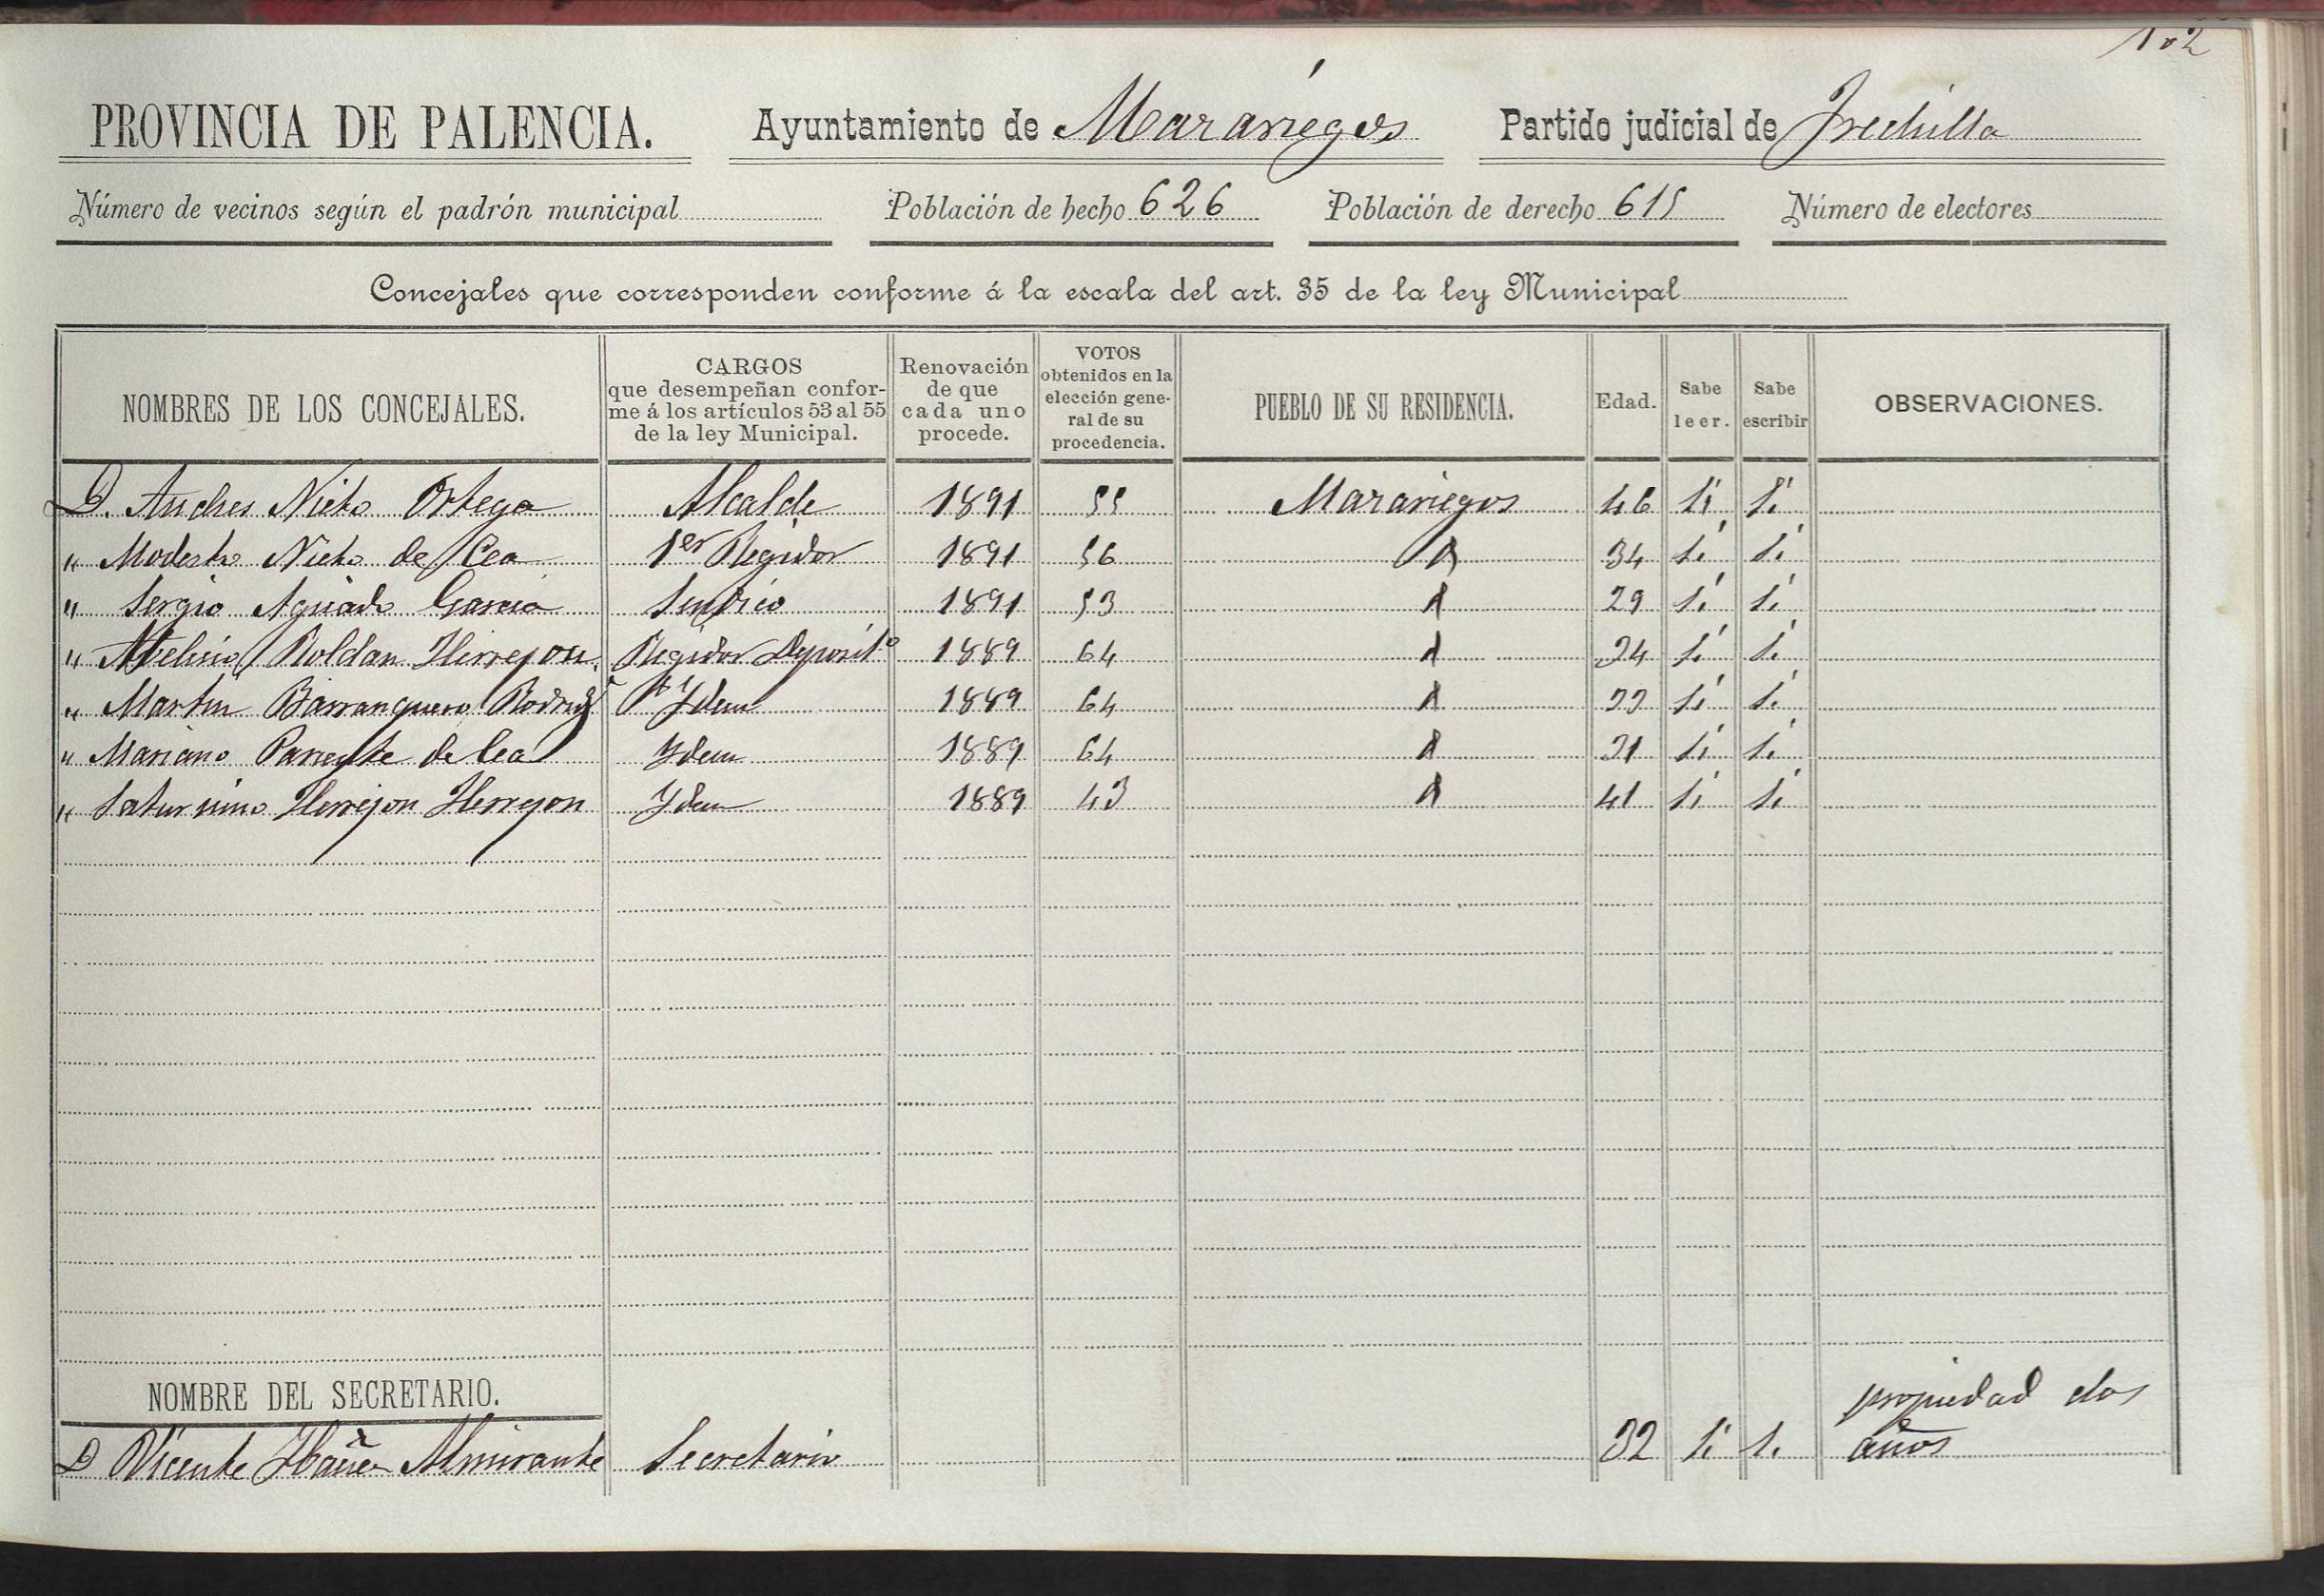 102
PROVINCIA DE PALENCIA. Ayuntamiento de Marariegos Partido judicial de Frechilla
Número de vecinos según el padrón municipal Población de hecho 626 Población de derecho 615 Número de electores
Concejales que corresponden conforme á la escala del art. 35 de la ley Municipal
NOMBRES DE LOS CONCEJALES. CARGOS que desempeñan conforme á los artículos 53 al 55 de la ley Municipal. Renovación de que cada uno procede. VOTOS obtenidos en la elección general de su procedencia. PUEBLO DE SU RESIDENCIA. Edad. Sabe leer. Sabe escribir OBSERVACIONES.
D. Andres Nieto Ortega Alcalde 1891 55 Marariegos 46 Si Si
" Modesto Nieto de Cea 1er Regidor 1891 56 34 Si Si
" Sergio Aguado Garcia Sindico 1891 53 29 Si Si
" Abelino Roldán Herrejon Regidor Deposito 1889 64 Si Si
" Martin Barranquero Rodrigz Idem 1889 64 Si Si
" Mariano Pariente de Cea Idem 1889 64 Si Si
" Saturnino Herrejon Herrejon Idem 1889 43 41 Si Si
NOMBRE DEL SECRETARIO.
D Vicente Ibañez Almirante Secretario 32 Si Si propiedad dos
años